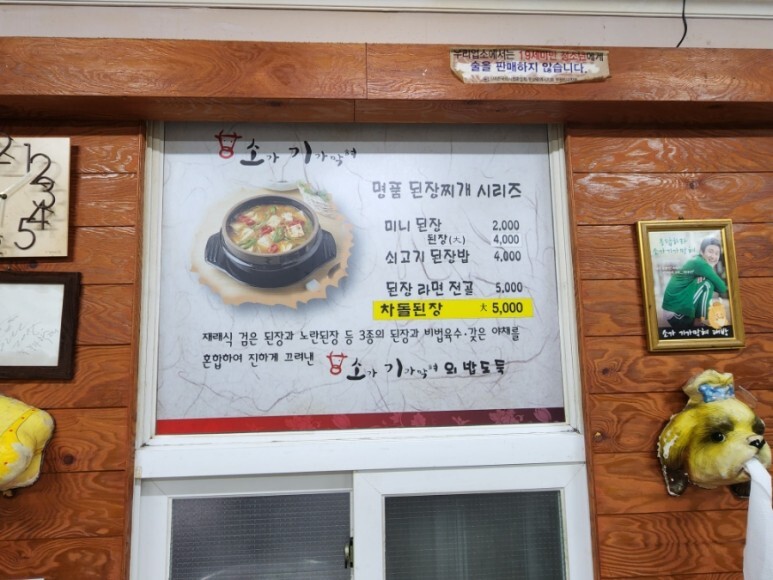 우리업소에서는 19세미만 청소년에게
술을 판매하지 않습니다.
소가 기가막혀
명품 된장찌개 시리즈
미니 된장 2,000
된장(大) 4,000
쇠고기 된장밥 4,000
된장 라면 전골 5,000
차돌된장 大 5,000
재래식 검은 된장과 노란된장 등 3종의 된장과 비법육수·갖은 야채를
혼합하여 진하게 끄려낸 소가 기가막혀 의 밥도둑
소가 기가막혀 대박
12
2
3
4
5